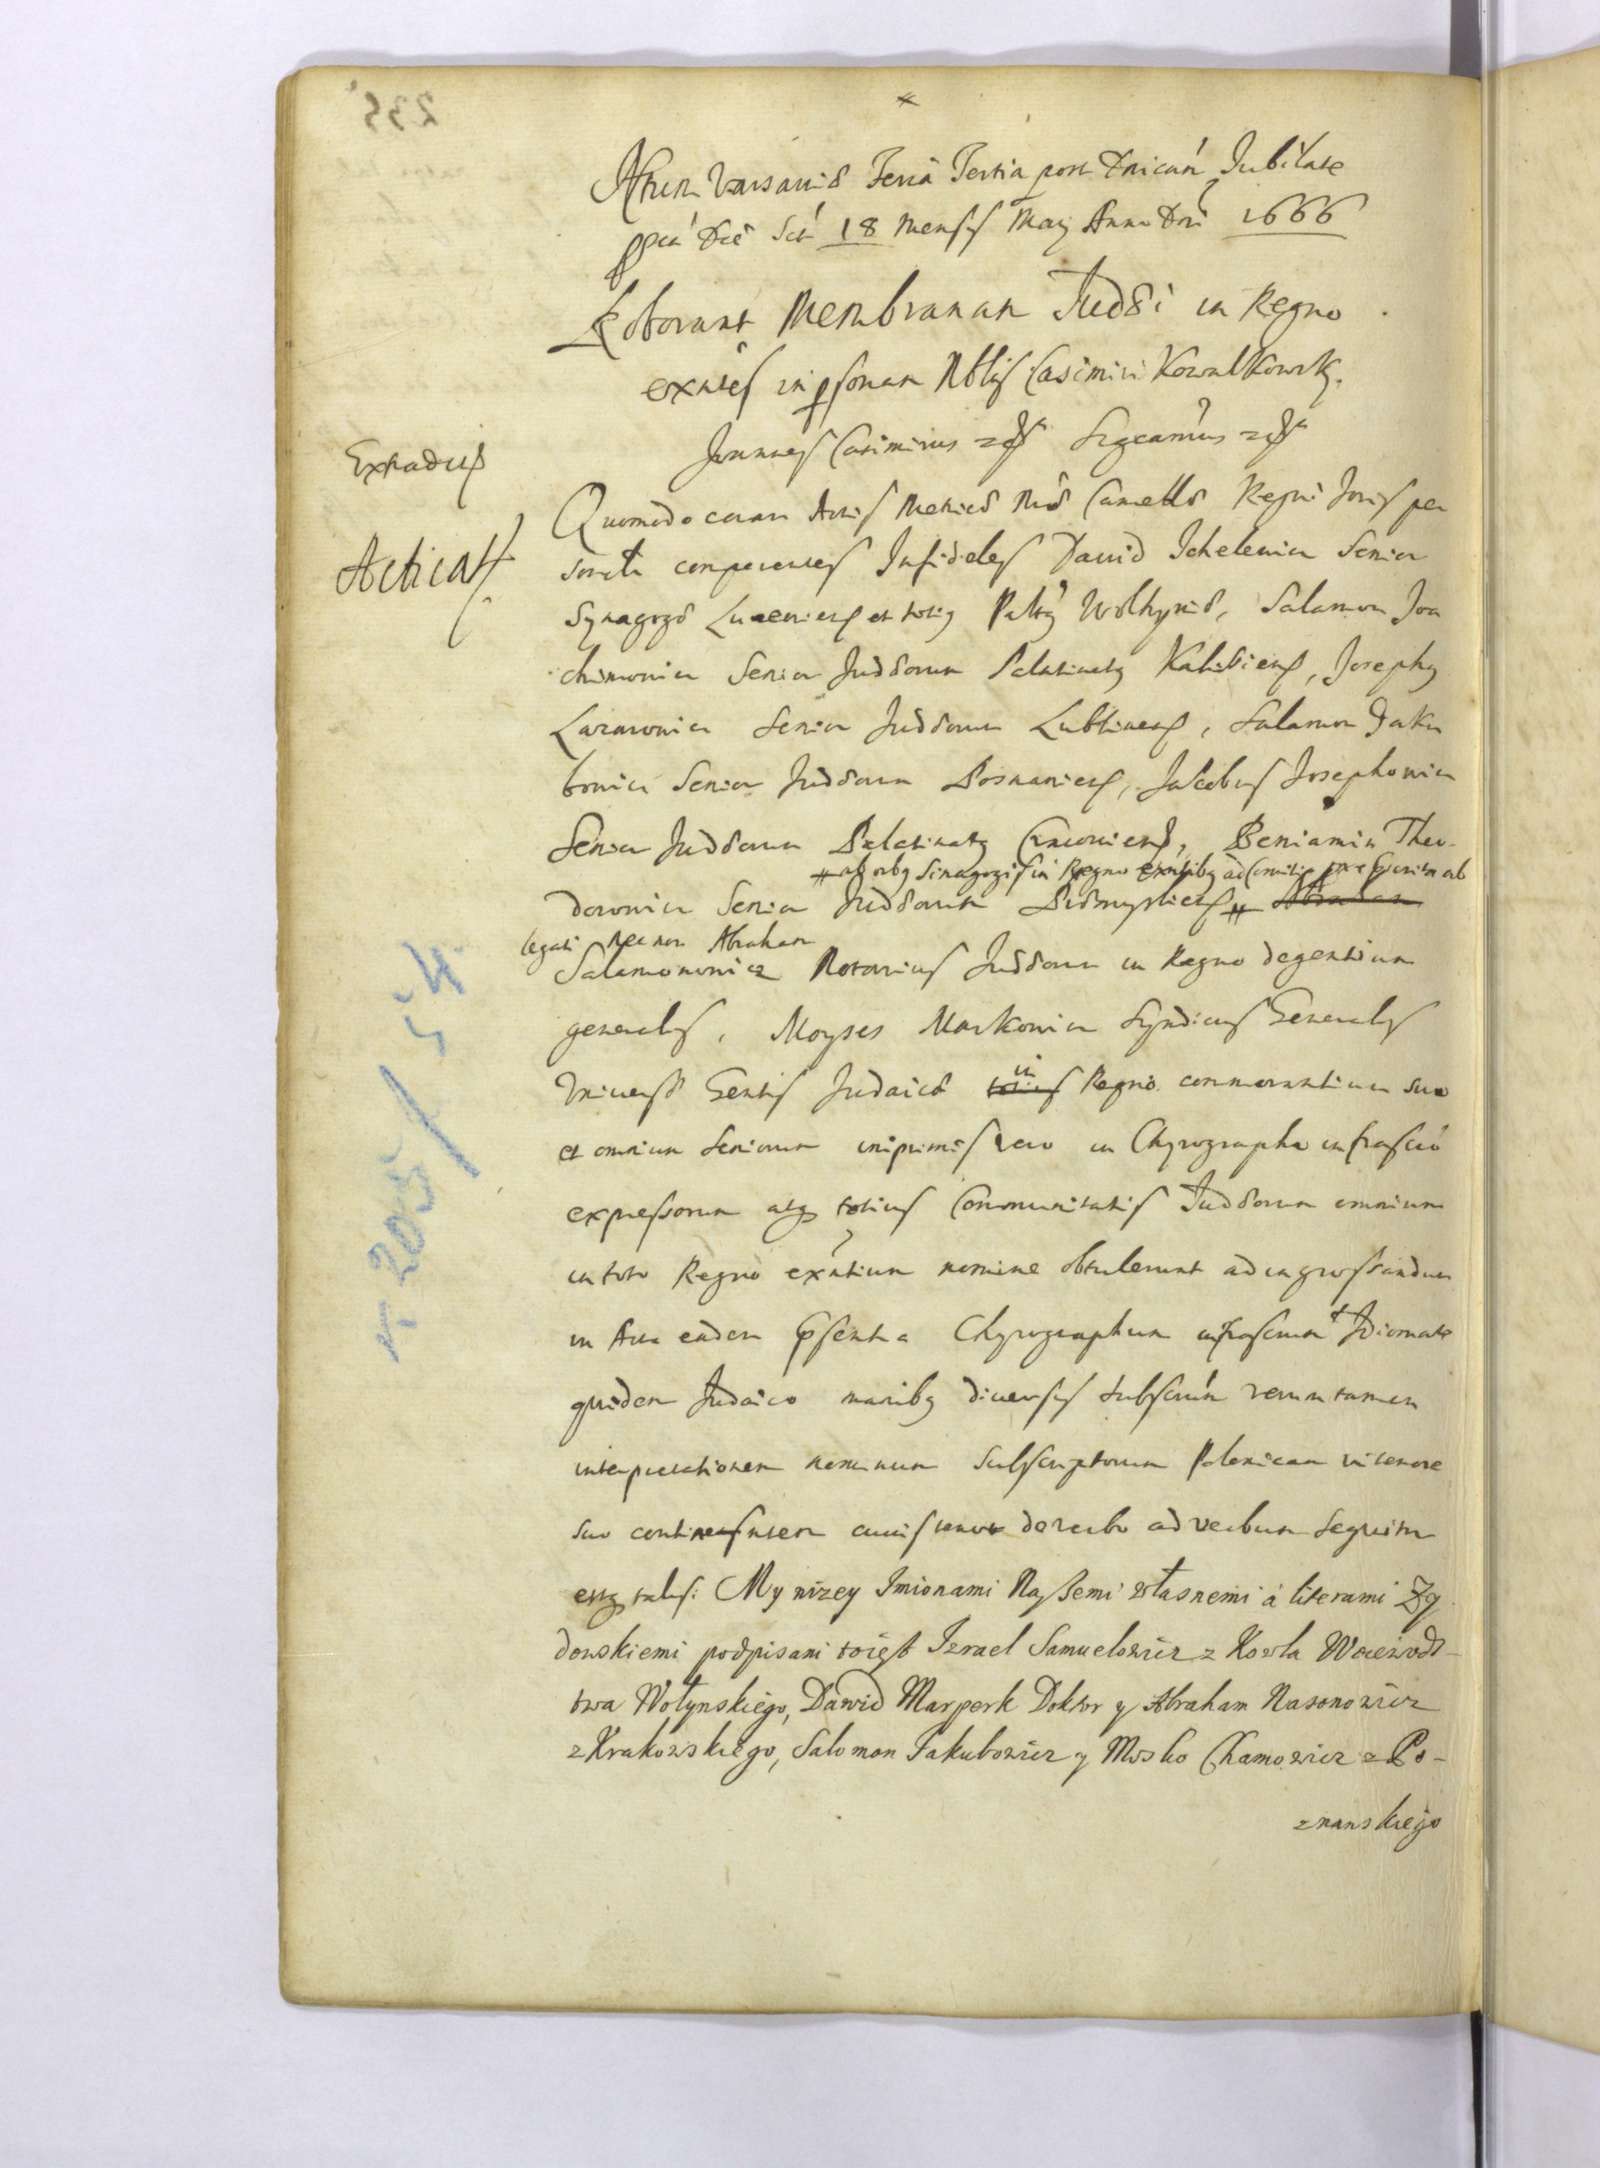 Actum Varsaviæ Feria Tertia post Dnicam Jubilate
ppia Die Sct 18 Mensis Maij Anno Dni 1666
Roborant Membranam Judæi in Regno
exntes in psonam Nblis Casimiri Kowalkowsk.
Joannes Casimirus &c Sigcamus &c
Extradit
Acticat
Quomodo coram Actis Metricæ Næ Cancellæ Regni Joris per
sonatr comparentes Infideles Dauid Ichelewicz Senior
Synagogæ Luceorien et totig Paltg Wolhyniæ, Salamon Joa
chimowicz Senior Judæorum Palatinatg Kalisien, Josephg
Lazarowicz Senior Judæorum Lublinen, Salamon Jaku
bowicz Senior Judæorum Posnanien, Jacobus Josephowicz
Senior Judæorum Palatinatg Cracouien, Beniamin Theo-
# ab oibg Sinagogis in Regno exntibg ad Comitia
dorowicz Senior Judæorum Præmyslien # Abraham
legati nec non Abraham
Salamonowicz Notarius Judæorum in Regno degentium
generalis, Moyses Markowicz Syndicus Generalis
Vniuersæ Gentis Judaicæ totius in Regno commorantium suo
et omnium Seniorum inprimis vero in Chyrographo infrascto
expressorum atg totius Communitatis Judæorum omnium
in toto Regno exntium nomine obtulerunt ad ingrossandum
in Acta eadem psentia Chyrographum infrascrum Idiomate
quidem Judaico manibg diuersis subscrum verumtamen
interpretationem nominum subscriptorum Polonicam in tenore
suo continentem cuius tenor de verbo ad verbum sequitur
estg talis: My nizey Imionami Naßemi własnemi á literami Zy
dowskiemi podpisani toiest Izrael Samuelowicz z Kowla Woiewodz-
twa Wołynskiego, Dawid Marperk Doktor y Abraham Nasonowicz
z Krakowskiego, Salomon Jakubowicz y Mosko Chamowicz z Po-
znanskiego